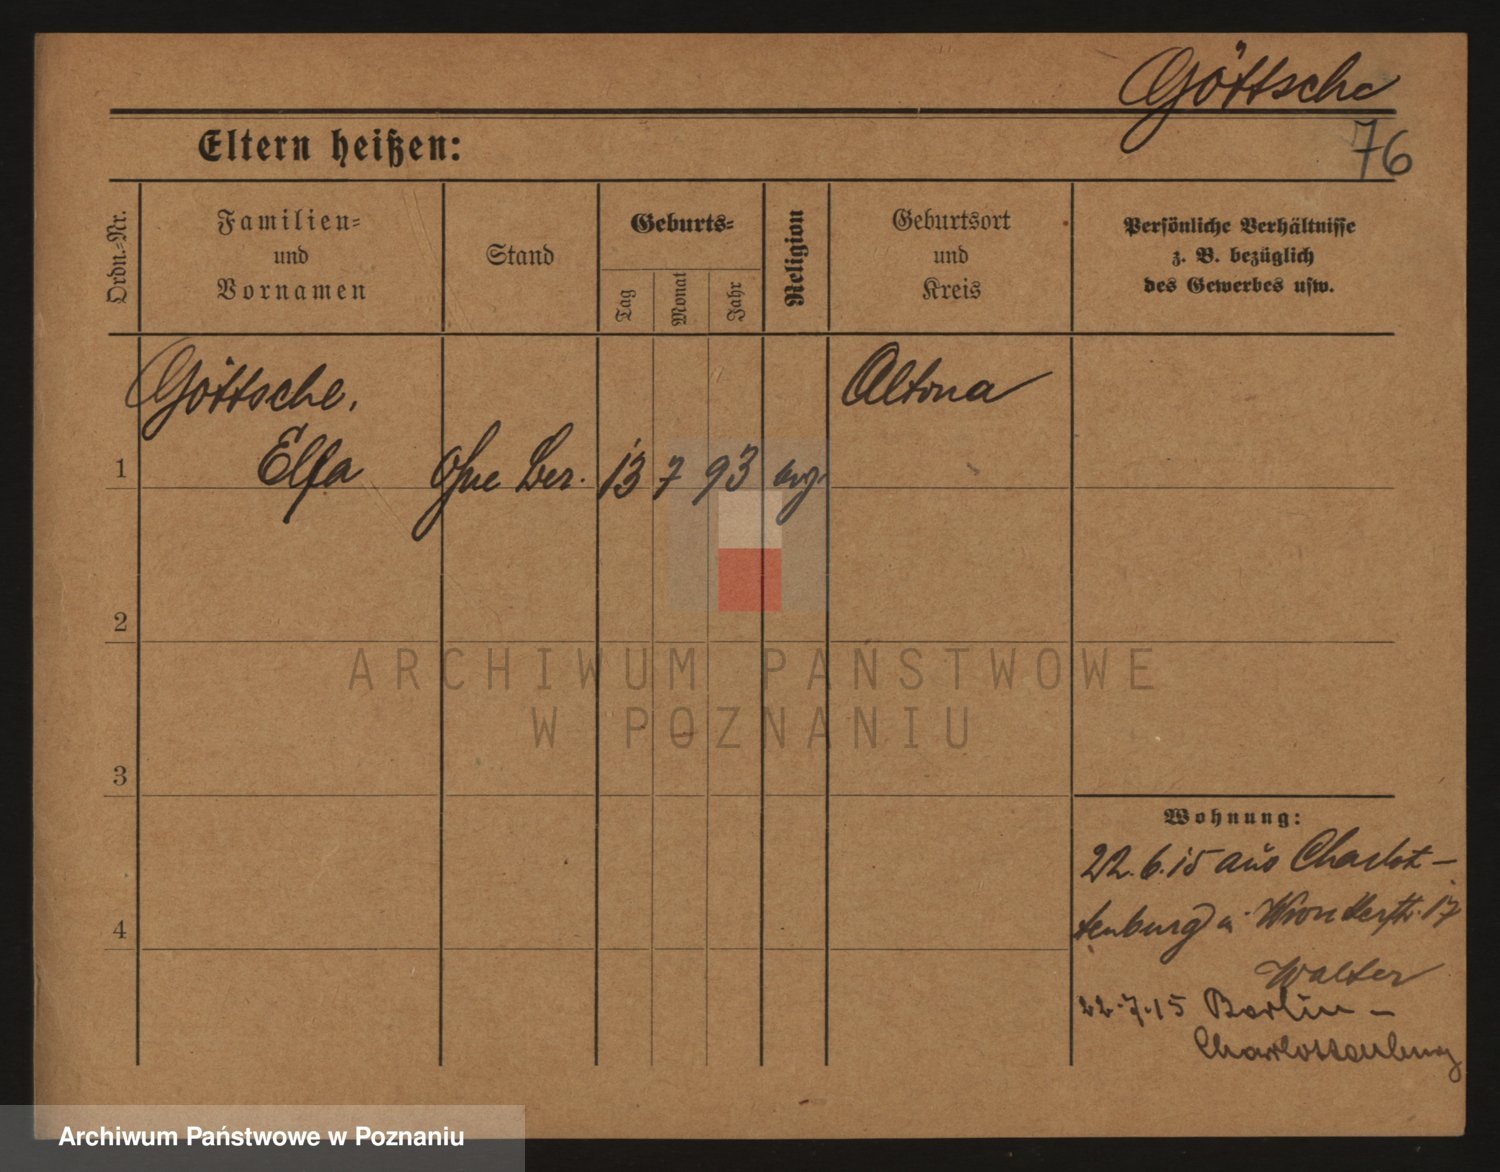 Göttsche
76
Eltern heißen:
Ordn.-Nr.
Familien-
und
Vornamen
Stand
Geburts-
Tag
Monat
Jahr
Religion
Geburtsort
und
Kreis
Persönliche Verhältnisse
z. B. bezüglich
des Gewerbes usw.
Göttsche,
Altona
1 Elsa ohne Ber. 13 7 93 evg.
2
3
4
Wohnung:
22.6.15 aus Charlot-
tenburg 17
Walter
22.7.15 Berlin-
Charlottenburg
ARCHIWUM PAŃSTWOWE
W POZNANIU
Archiwum Państwowe w Poznaniu